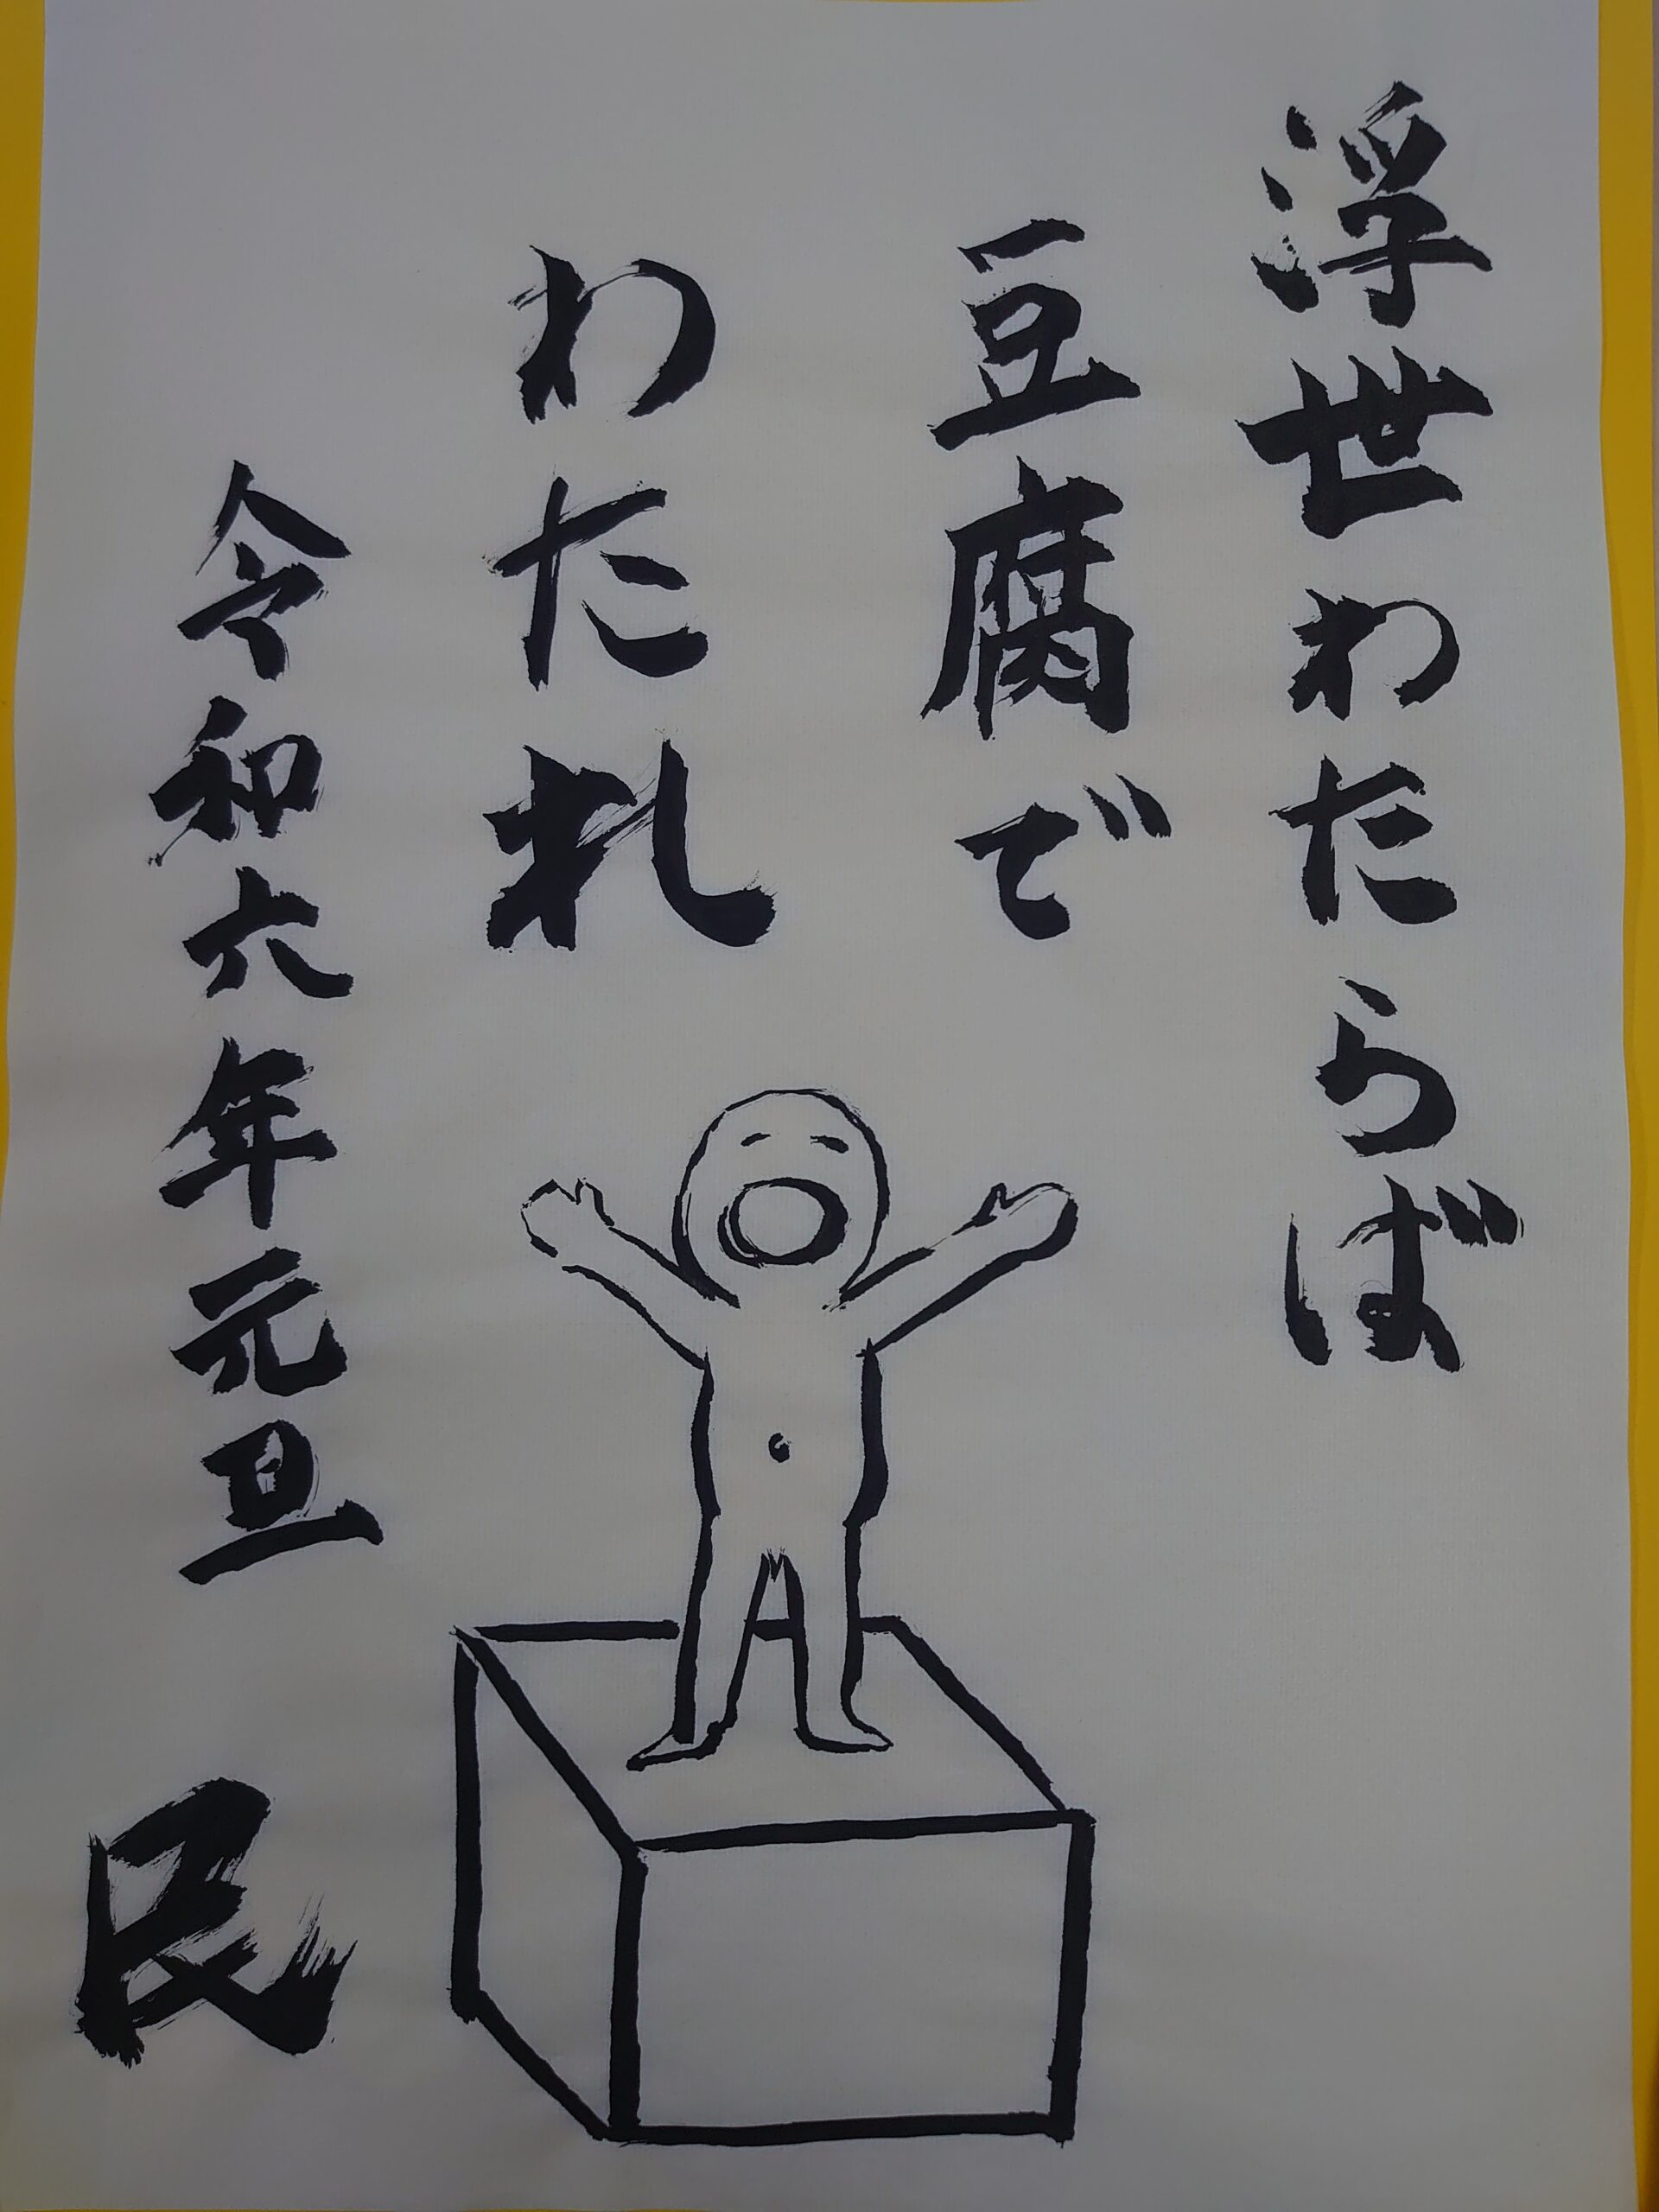 浮世わたらば
豆腐で
わたれ
令和六年元旦
民